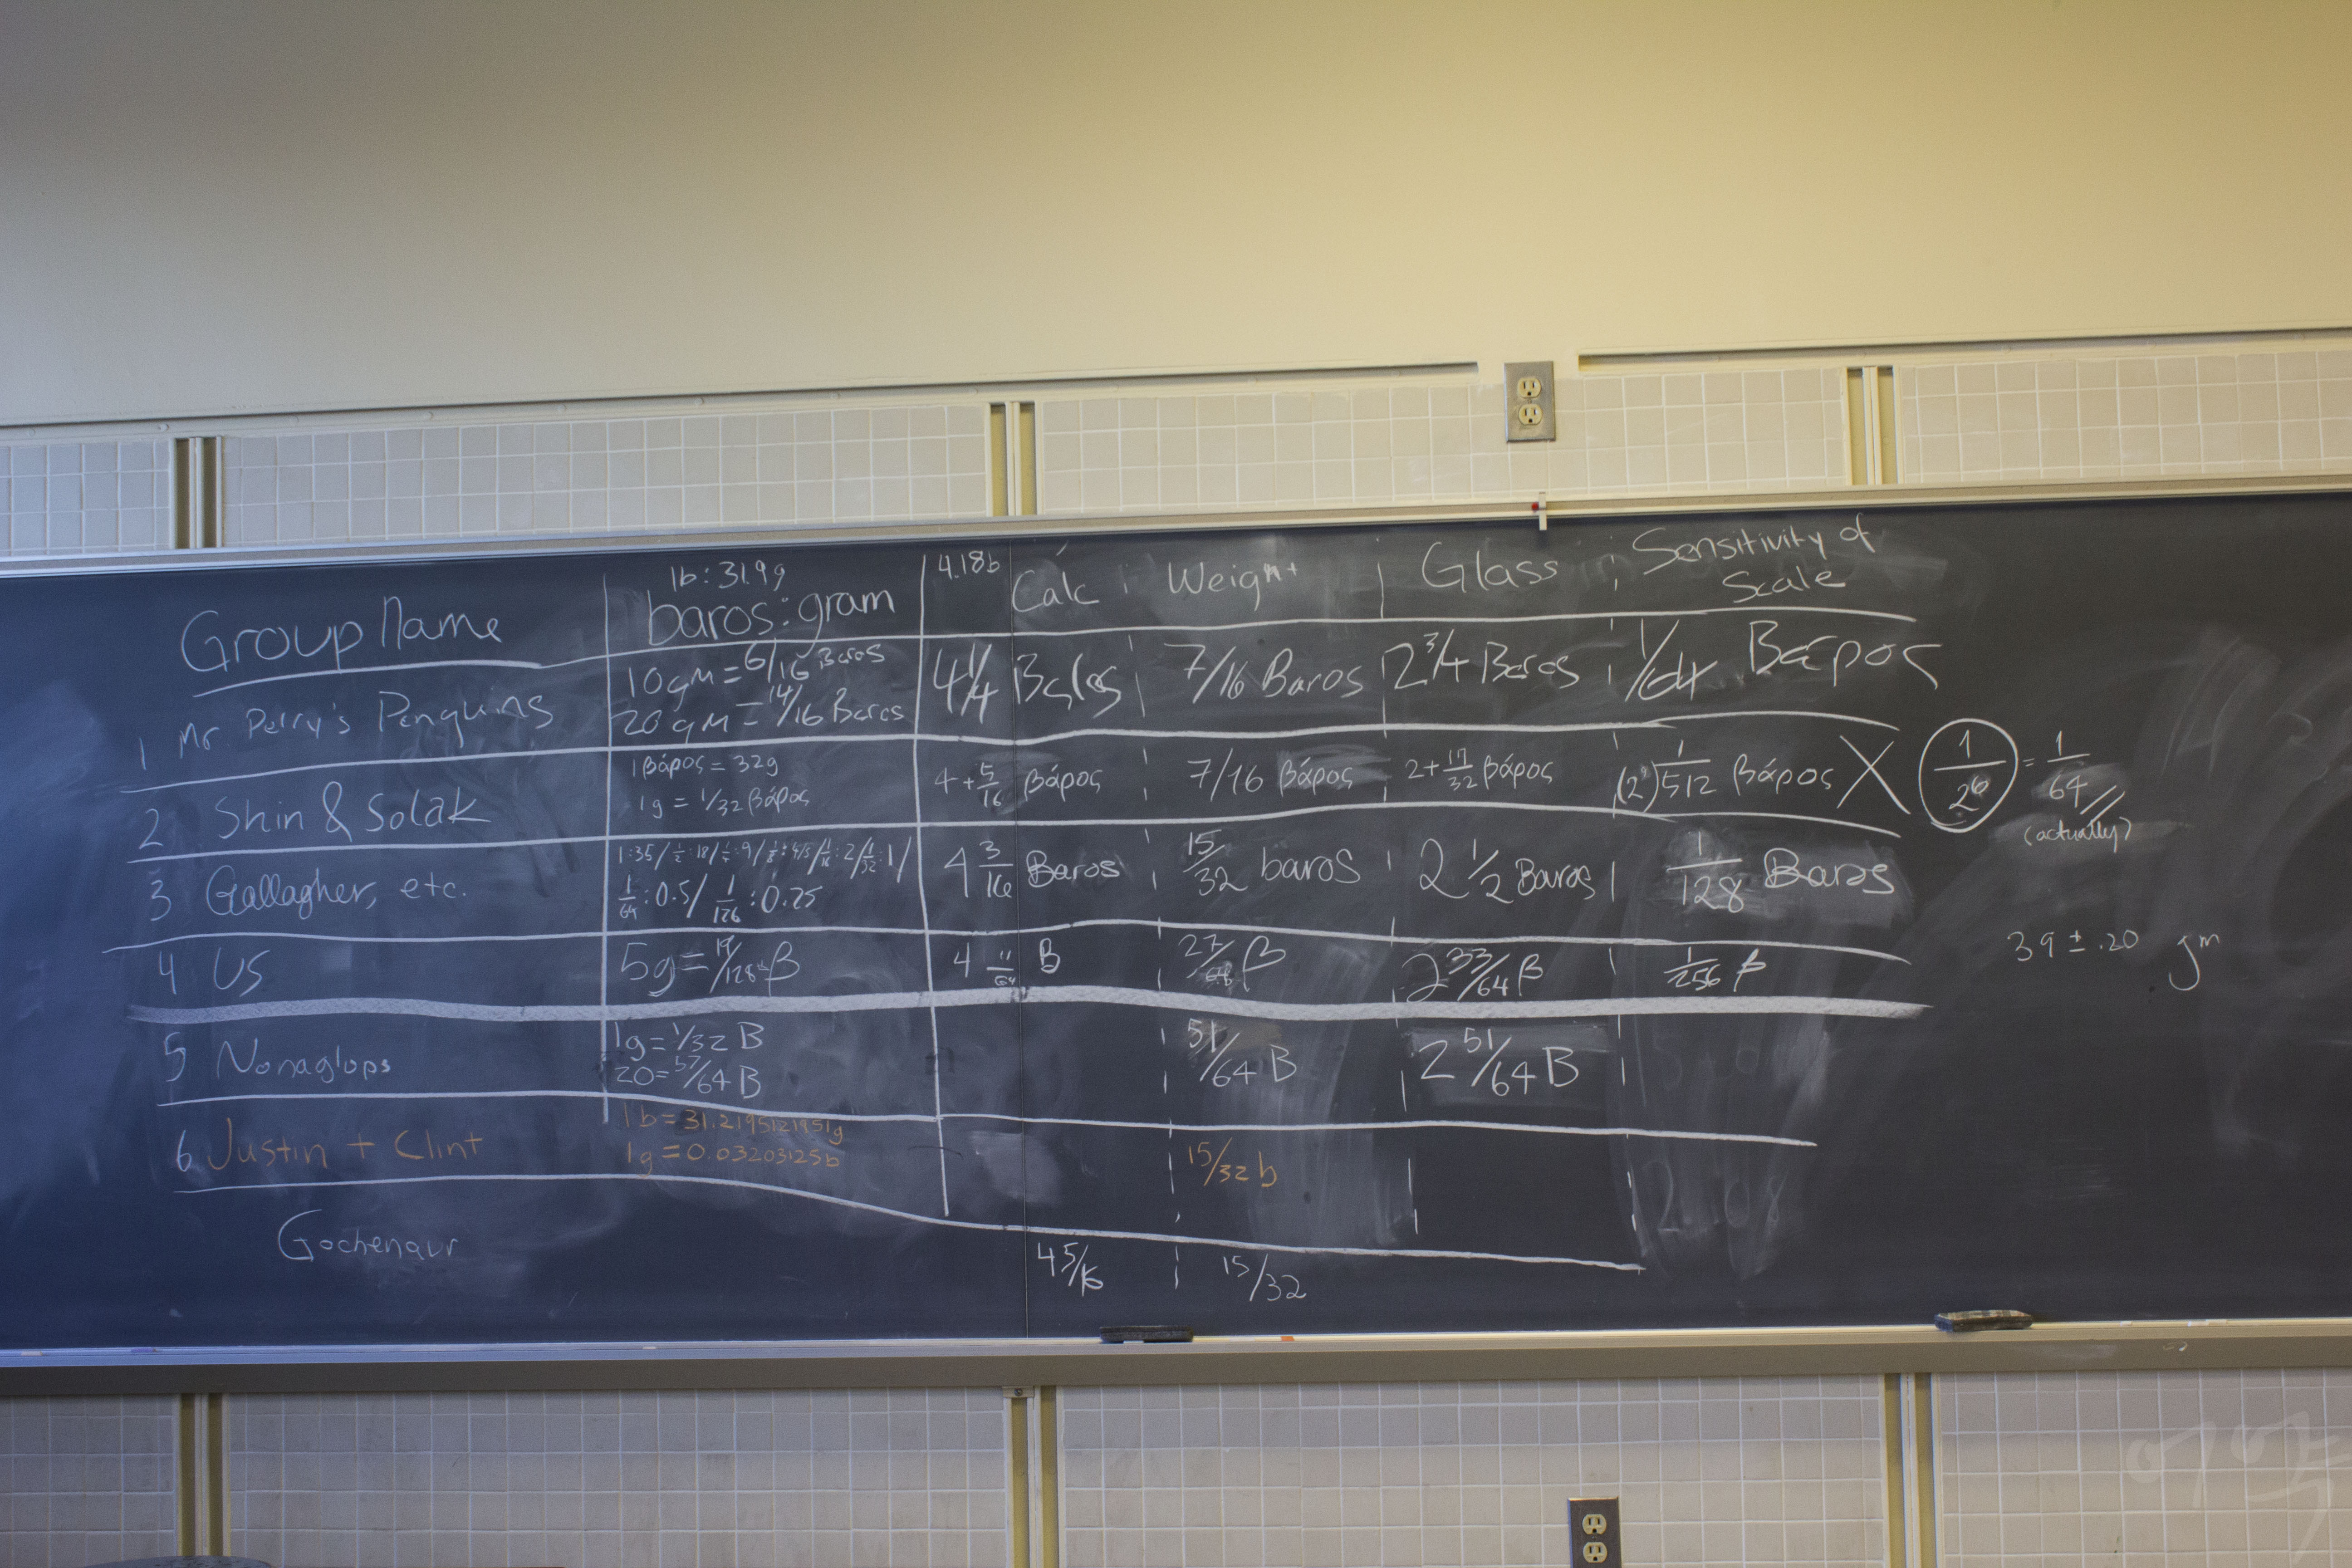 1b:31.9g
4.18b
Group Name
baros:gram
Calc
Weight
Glass
Sensitivity of
Scale
1 Mr Perry's Penguins
10gm=6/16 Baros
20gm=14/16 Baros
4 1/4
7/16 Baros
2 3/4 Baros
1/64 Βαρος
2 Shin & Solak
1 βάρος = 32g
1g = 1/32 βάρος
4+5/16 βάρος
7/16 βάρος
2+17/32 βάρος
(2⁹) 1/512 βάρος X
1/2⁶ = 1/64
(actually)
3 Gallagher, etc.
1:35/ 1/2:18/ 1/4:9/ 1/8:4/5/ 1/16:2/ 1/32:1/
1/64:0.5/ 1/126:0.25
4 3/16 Baros
15/32 baros
2 1/2 Baros
1/128 Baros
4 US
5g=19/128 β
4 11/64 B
27/ β
2 33/64 β
1/256 β
39 ± .20 gm
5 Nonaglops
1g=1/32 B
20=57/64 B
51/64 B
2 51/64 B
6 Justin + Clint
1b=31.2195121951g
1g=0.03203125b
15/32 b
Gochenaur
4 5/16
15/32